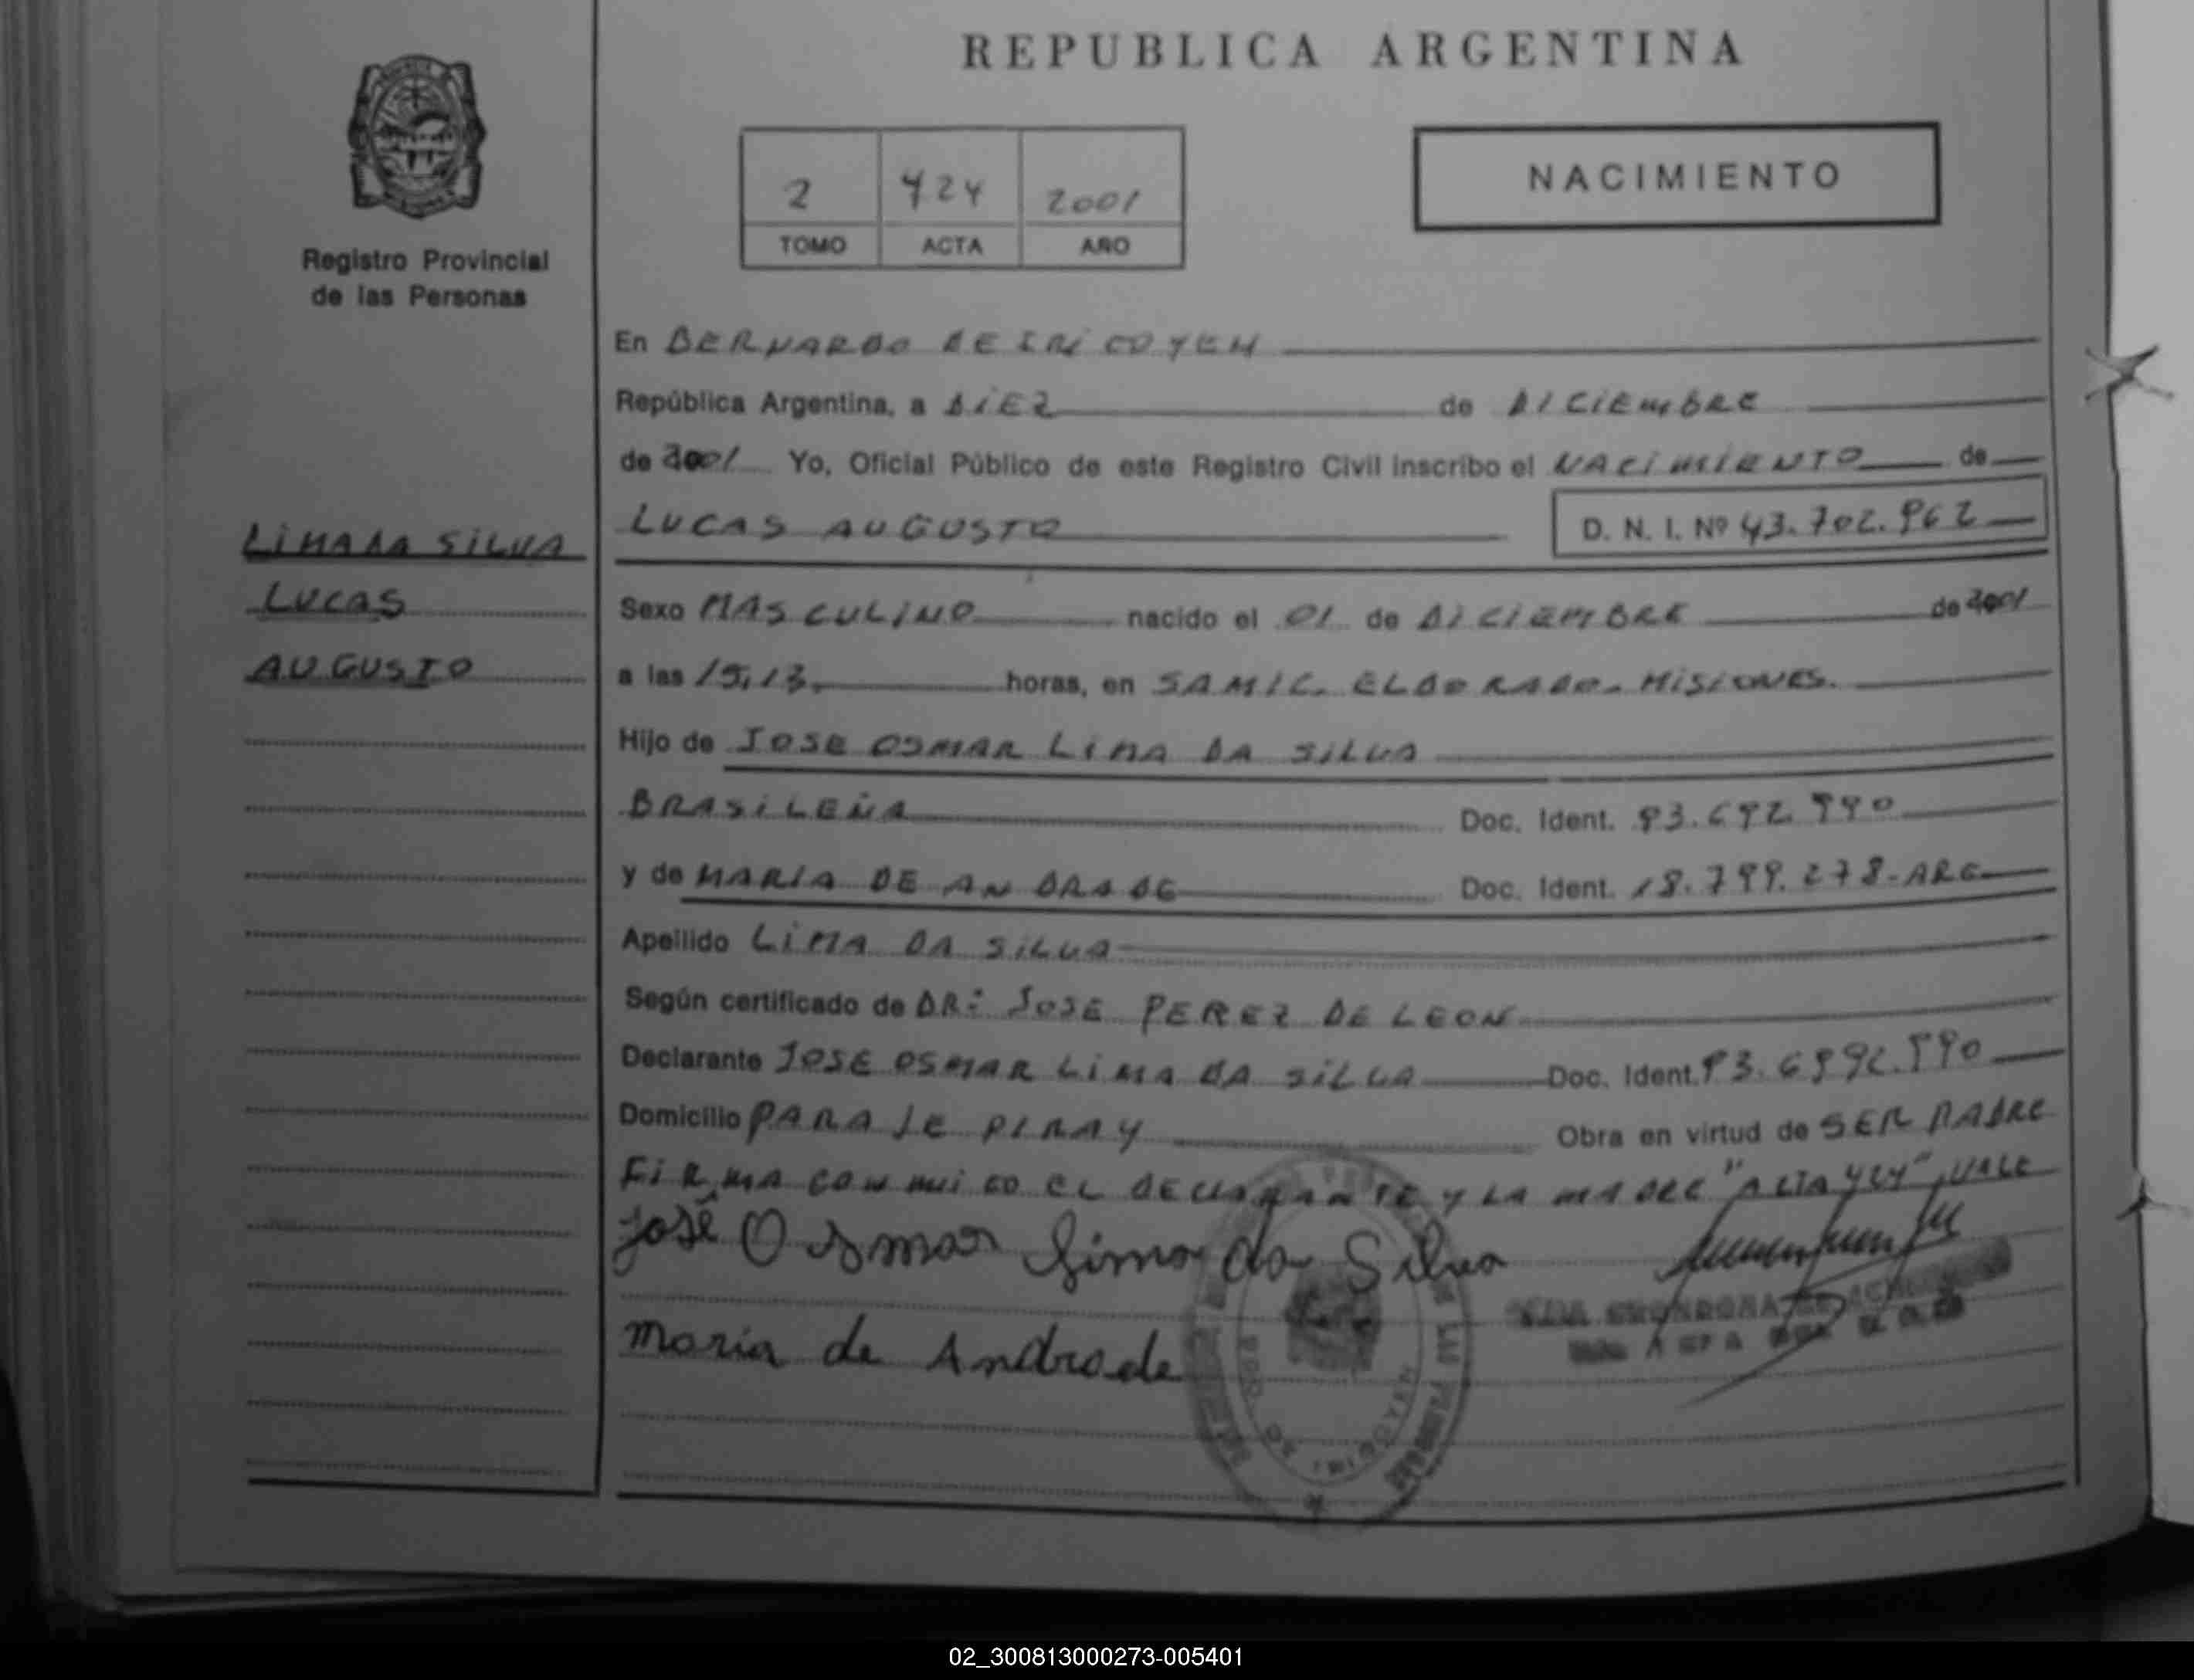 REPUBLICA ARGENTINA
NACIMIENTO
2 424 2001
TOMO ACTA AÑO
Registro Provincial
de las Personas
En BERNARDO DE IRICOYEN
República Argentina, a DIEZ de DICIEMBRE
de 2001 Yo, Oficial Público de este Registro Civil inscribo el NACIMIENTO de
LUCAS AUGUSTO D. N. I. Nº 43.702.962
LIMA DA SILVA
LUCAS
AUGUSTO
Sexo MASCULINO nacido el 01 de DICIEMBRE de 2001
a las 15,13 horas, en SAMIC. ELDORADO. MISIONES.
Hijo de JOSE OSMAR LIMA DA SILVA
BRASILEÑA Doc. Ident.
y de MARIA DE ANDRADE Doc. Ident. 18.799.278-ARG
Apellido LIMA DA SILVA
Según certificado de DR: JOSE PEREZ DE LEON
Declarante JOSE OSMAR LIMA DA SILVA Doc. Ident.
Domicilio PARAJE PIRAY Obra en virtud de SER PADRE
FIRMA CONMIGO EL DECLARANTE Y LA MADRE "ACTA 424", VALE
José Osmar Lima da Silva
Maria de Andrade
02_300813000273-005401